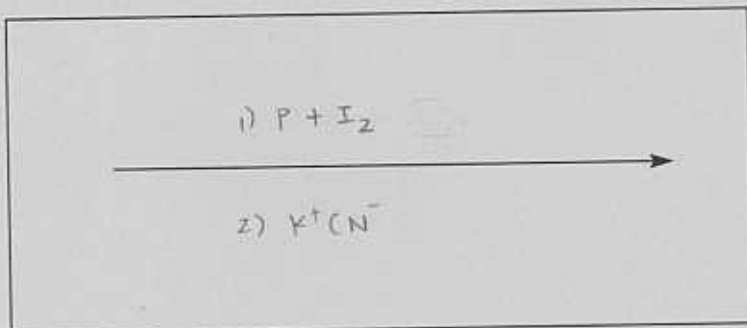 1) P + I₂
2) K⁺CN⁻